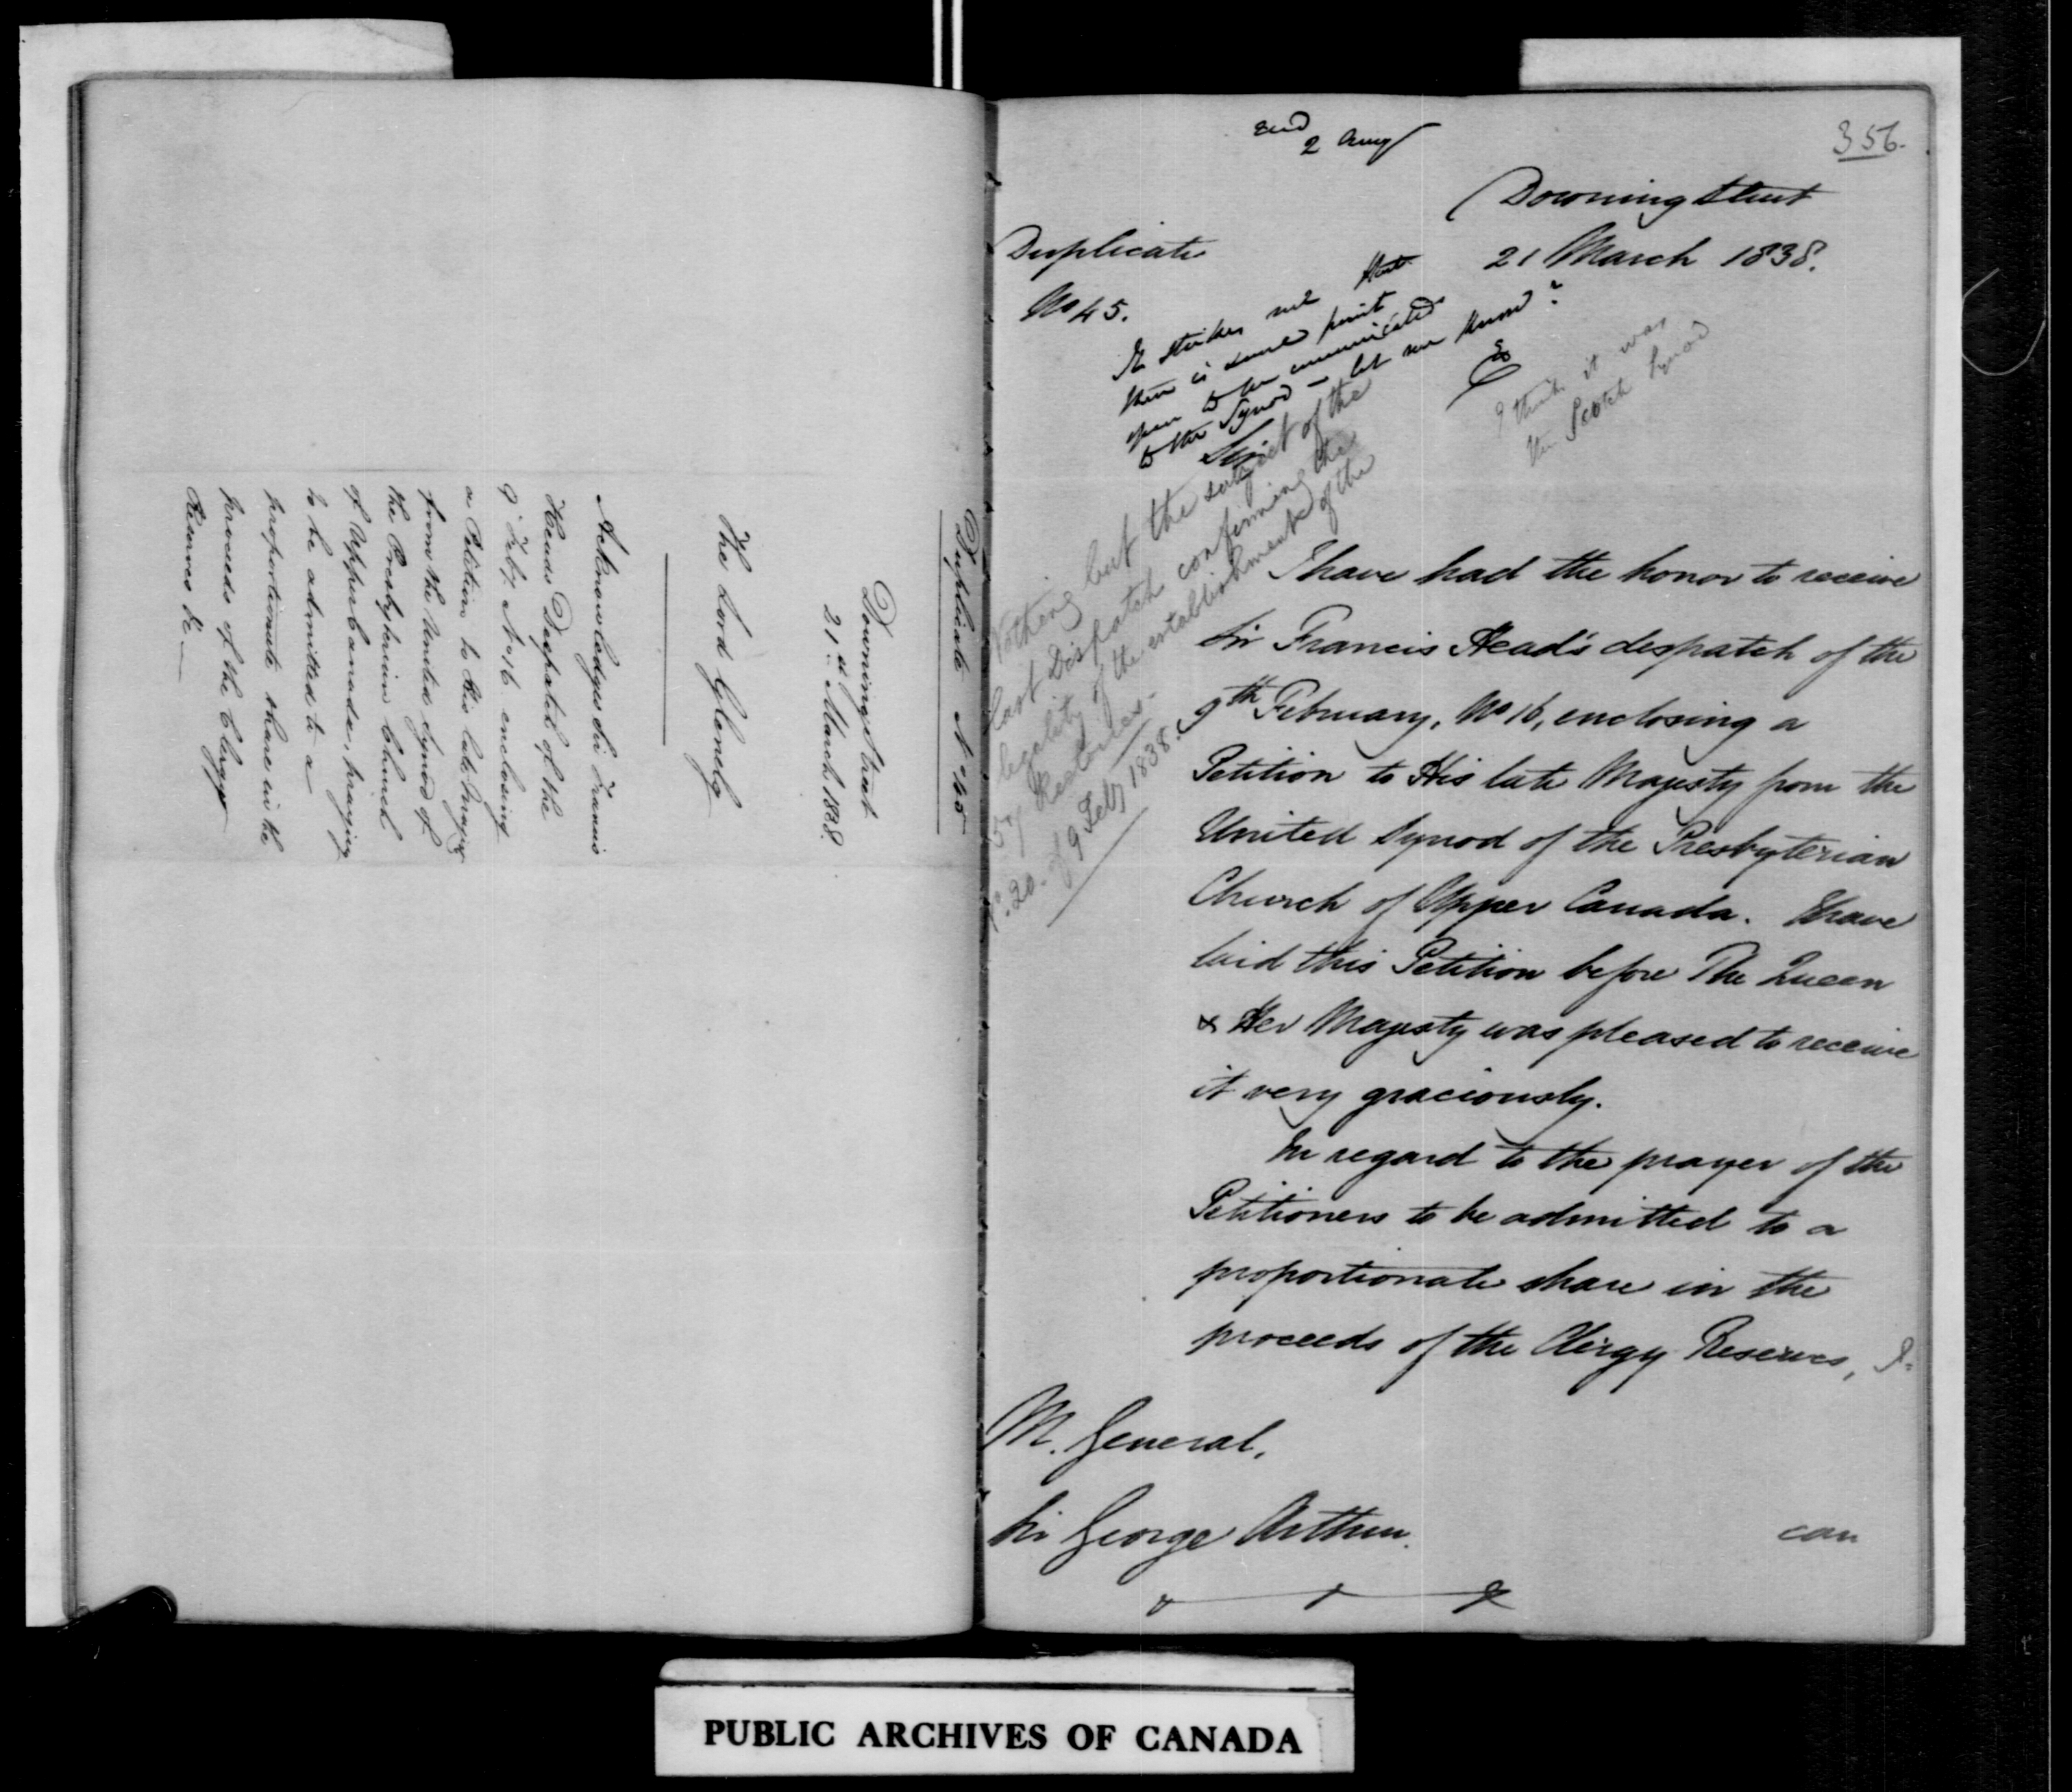 Duplicate No 45
Downing Street
21st March 1838.
The Lord Glenelg
Acknowledges Sir Francis
Heads Despatch of the
9 Feby No 16 enclosing
a Petition to His late Majesty
from the United Synod of
the Presbyterian Church
of Upper Canada, praying
to be admitted to a
proportionate share in the
proceeds of the Clergy
Reserves &c
356.
2 Augt
Downing Street
21 March 1838.
Duplicate
No 45.
It strikes me that
there is some point
open to be communicated
to the Synod - let me know?
I think it was
the Scotch Synod
Sir
Nothing but the subject of the
last Dispatch confirming the
legality of the establishment of the
57 Rectories.
No. 20. of 9 Feby 1838.
I have had the honor to receive
Sir Francis Head's despatch of the
9th February, No 16, enclosing a
Petition to His late Majesty from the
United Synod of the Presbyterian
Church of Upper Canada. I have
laid this Petition before The Queen
& Her Majesty was pleased to receive
it very graciously.
In regard to the prayer of the
Petitioners to be admitted to a
proportionate share in the
proceeds of the Clergy Reserves, I
M. General,
Sir George Arthur.
can
PUBLIC ARCHIVES OF CANADA